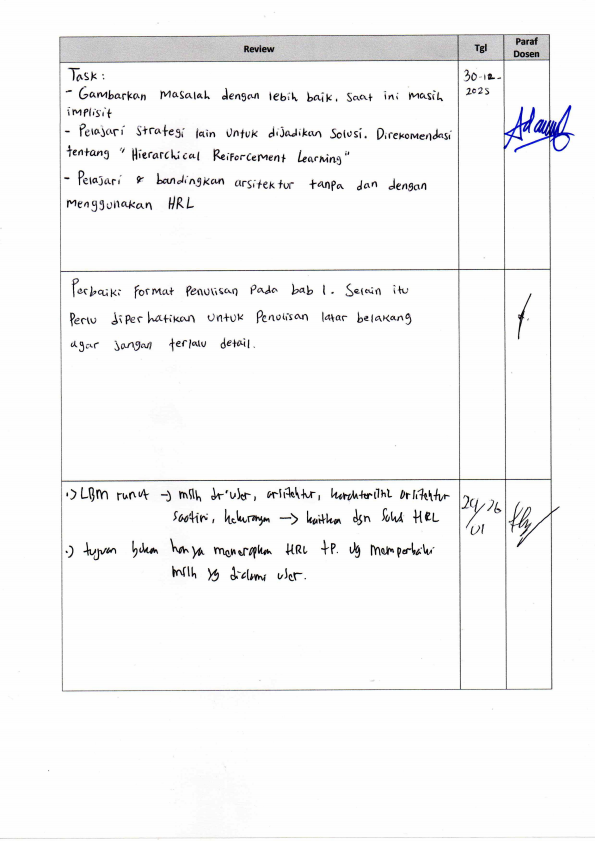 Review Tgl Paraf Dosen
Task :
- Gambarkan masalah dengan lebih baik, saat ini masih
implisit
- Pelajari strategi lain untuk dijadikan solusi. Direkomendasi
tentang "Hierarchical Reiforcement Learning"
- Pelajari & bandingkan arsitektur tanpa dan dengan
menggunakan HRL
30-12-
2025
Perbaiki format penulisan pada bab 1. Selain itu
perlu diperhatikan untuk penulisan latar belakang
agar jangan terlalu detail.
.) LBM runut → mslh dr user, arsitektur, karakteristik arsitektur
saatini, kekurangan → kaitkan dgn solusi HRL
.) tujuan bukan hanya menerapkan HRL tp. yg memperbaiki
mslh yg dialami user.
29/26
01